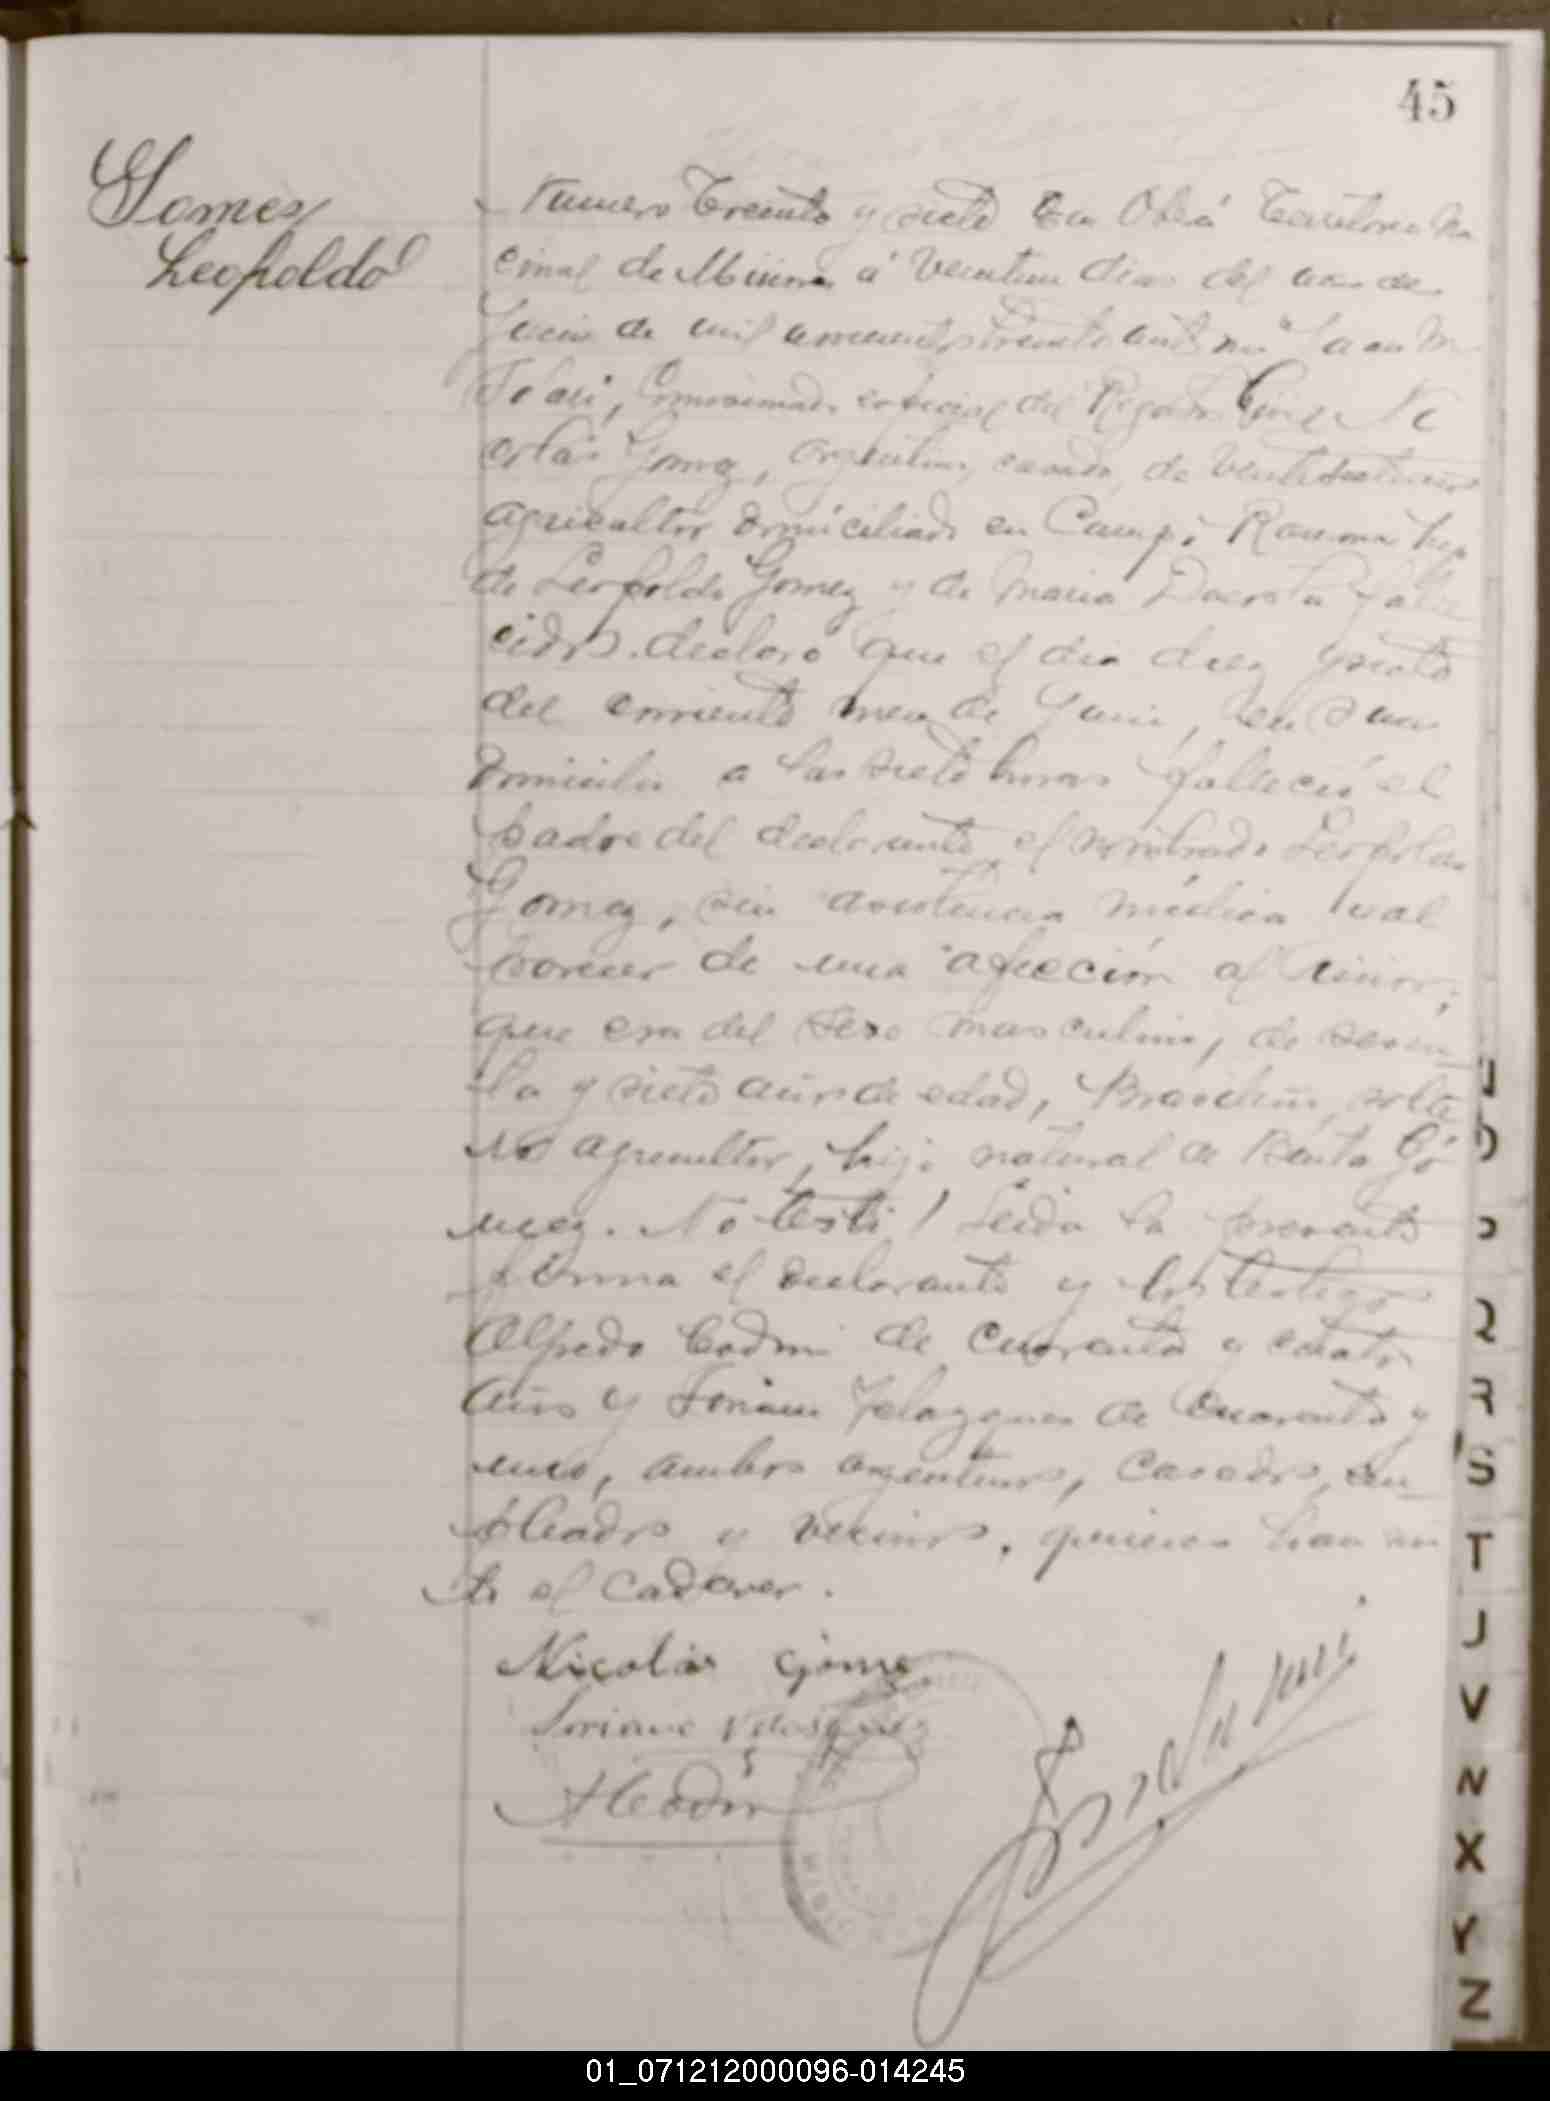 45
Gomez
Leopoldo
Numero Treinta y siete En Oberá Territorio Na
cional de Misiones á veintiun dias del mes de
Junio de mil novecientos treinta ante mi
Comisionado especial del Registro Civil Ni
colás Gomez, argentino, casado, de veintisiete años
agricultor domiciliado en Campo Ramon hijo
de Leopoldo Gomez y de Maria Dacosta falle
cidos. declaró que el dia diez y siete
del corriente mes de Junio, en su
domicilio a las siete horas falleció el
padre del declarante el nombrado Leopoldo
Gomez, sin asistencia médica
de una afección al riñon;
que era del sexo masculino, de seten
ta y siete años de edad, Brasileño, solte
ro agricultor, hijo natural de Benta Gó
mez. No testó / Leida la presente
firma el declarante y los testigos
Alfredo de cuarenta y cuatro
años y Velazquez de cuarenta y
uno, ambos argentinos, casados, em
pleados y vecinos, quienes han vis
to el cadaver.
Nicolás Gomez
Velasquez
01_071212000096-014245
Q
R
S
T
J
V
N
X
Y
Z